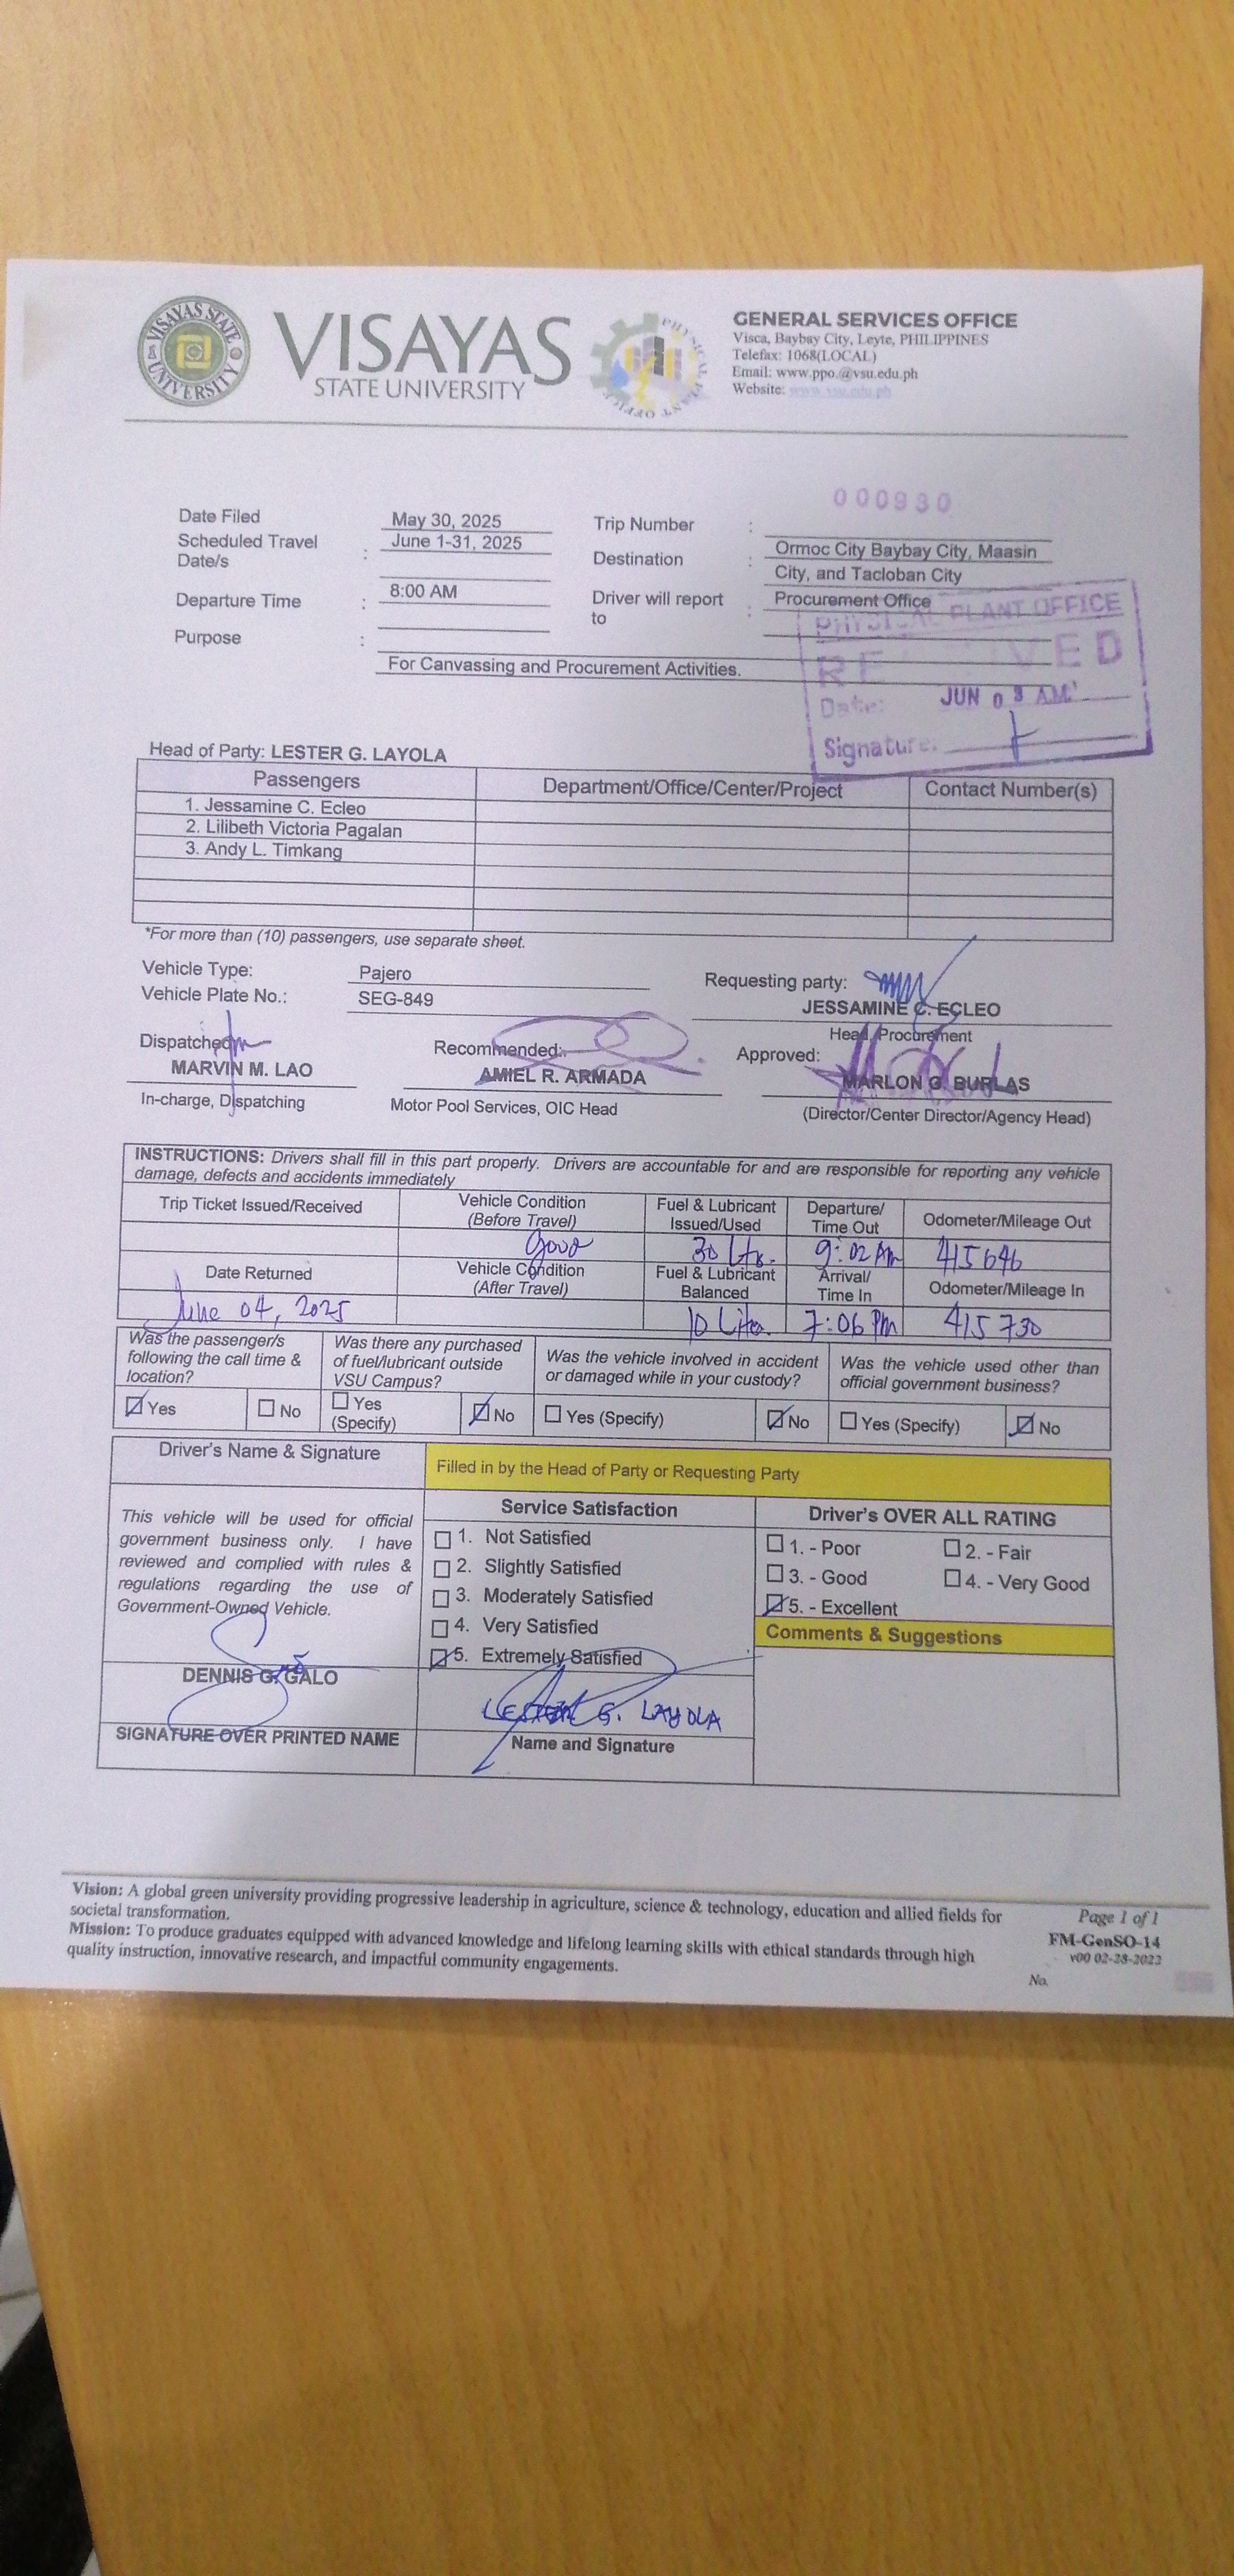 VISAYAS STATE UNIVERSITY
VISAYAS
STATE UNIVERSITY
PHYSICAL PLANT OFFICE
GENERAL SERVICES OFFICE
Visca, Baybay City, Leyte, PHILIPPINES
Telefax: 1068(LOCAL)
Email: www.ppo.@vsu.edu.ph
Website: www.vsu.edu.ph
000930
Date Filed May 30, 2025 Trip Number :
Scheduled Travel Date/s : June 1-31, 2025 Destination : Ormoc City Baybay City, Maasin
City, and Tacloban City
Departure Time : 8:00 AM Driver will report to : Procurement Office
Purpose :
For Canvassing and Procurement Activities.
PHYSICAL PLANT OFFICE
RECEIVED
Date: JUN 03 A.M.
Signature:
Head of Party: LESTER G. LAYOLA
Passengers Department/Office/Center/Project Contact Number(s)
1. Jessamine C. Ecleo
2. Lilibeth Victoria Pagalan
3. Andy L. Timkang
*For more than (10) passengers, use separate sheet.
Vehicle Type: Pajero Requesting party:
Vehicle Plate No.: SEG-849 JESSAMINE C. ECLEO
Head, Procurement
Dispatched: Recommended: Approved:
MARVIN M. LAO AMIEL R. ARMADA MARLON G. BURLAS
In-charge, Dispatching Motor Pool Services, OIC Head (Director/Center Director/Agency Head)
INSTRUCTIONS: Drivers shall fill in this part properly. Drivers are accountable for and are responsible for reporting any vehicle
damage, defects and accidents immediately
Trip Ticket Issued/Received Vehicle Condition (Before Travel) Fuel & Lubricant Issued/Used Departure/ Time Out Odometer/Mileage Out
good 30 Ltrs. 9:02 Am 415646
Date Returned Vehicle Condition (After Travel) Fuel & Lubricant Balanced Arrival/ Time In Odometer/Mileage In
June 04, 2025 10 Liter 7:06 Pm 415730
Was the passenger/s following the call time & location? Was there any purchased of fuel/lubricant outside VSU Campus? Was the vehicle involved in accident or damaged while in your custody? Was the vehicle used other than official government business?
Yes No Yes (Specify) No Yes (Specify) No Yes (Specify) No
Driver's Name & Signature Filled in by the Head of Party or Requesting Party
Service Satisfaction Driver's OVER ALL RATING
This vehicle will be used for official
government business only. I have
reviewed and complied with rules &
regulations regarding the use of
Government-Owned Vehicle.
1. Not Satisfied
2. Slightly Satisfied
3. Moderately Satisfied
4. Very Satisfied
5. Extremely Satisfied
1. - Poor 2. - Fair
3. - Good 4. - Very Good
5. - Excellent
Comments & Suggestions
DENNIS G. GALO
LESTER G. LAYOLA
SIGNATURE OVER PRINTED NAME
Name and Signature
Vision: A global green university providing progressive leadership in agriculture, science & technology, education and allied fields for
societal transformation.
Mission: To produce graduates equipped with advanced knowledge and lifelong learning skills with ethical standards through high
quality instruction, innovative research, and impactful community engagements.
Page 1 of 1
FM-GenSO-14
v00 02-28-2022
No.